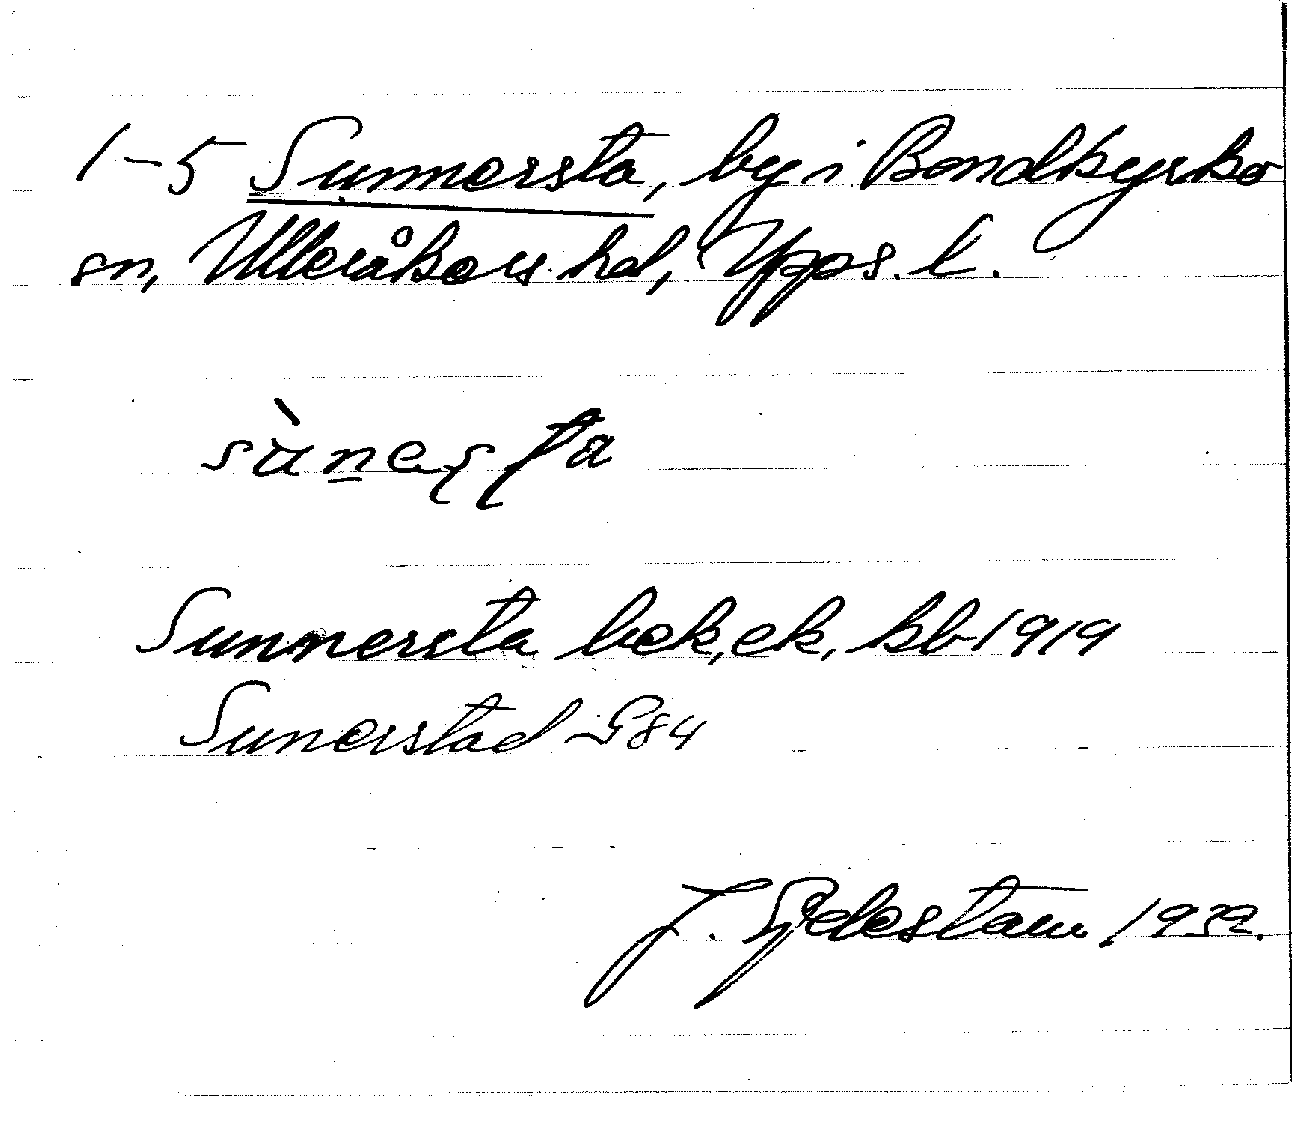 1-5 Sunnersta, by i Bondkyrko
sn, Ulleråkers hd, Upps. l.
sùn̲eʂʈa
Sunnersta bek, ek, kb 1919
Sunerstad G84
J. Sjelestam 1932.